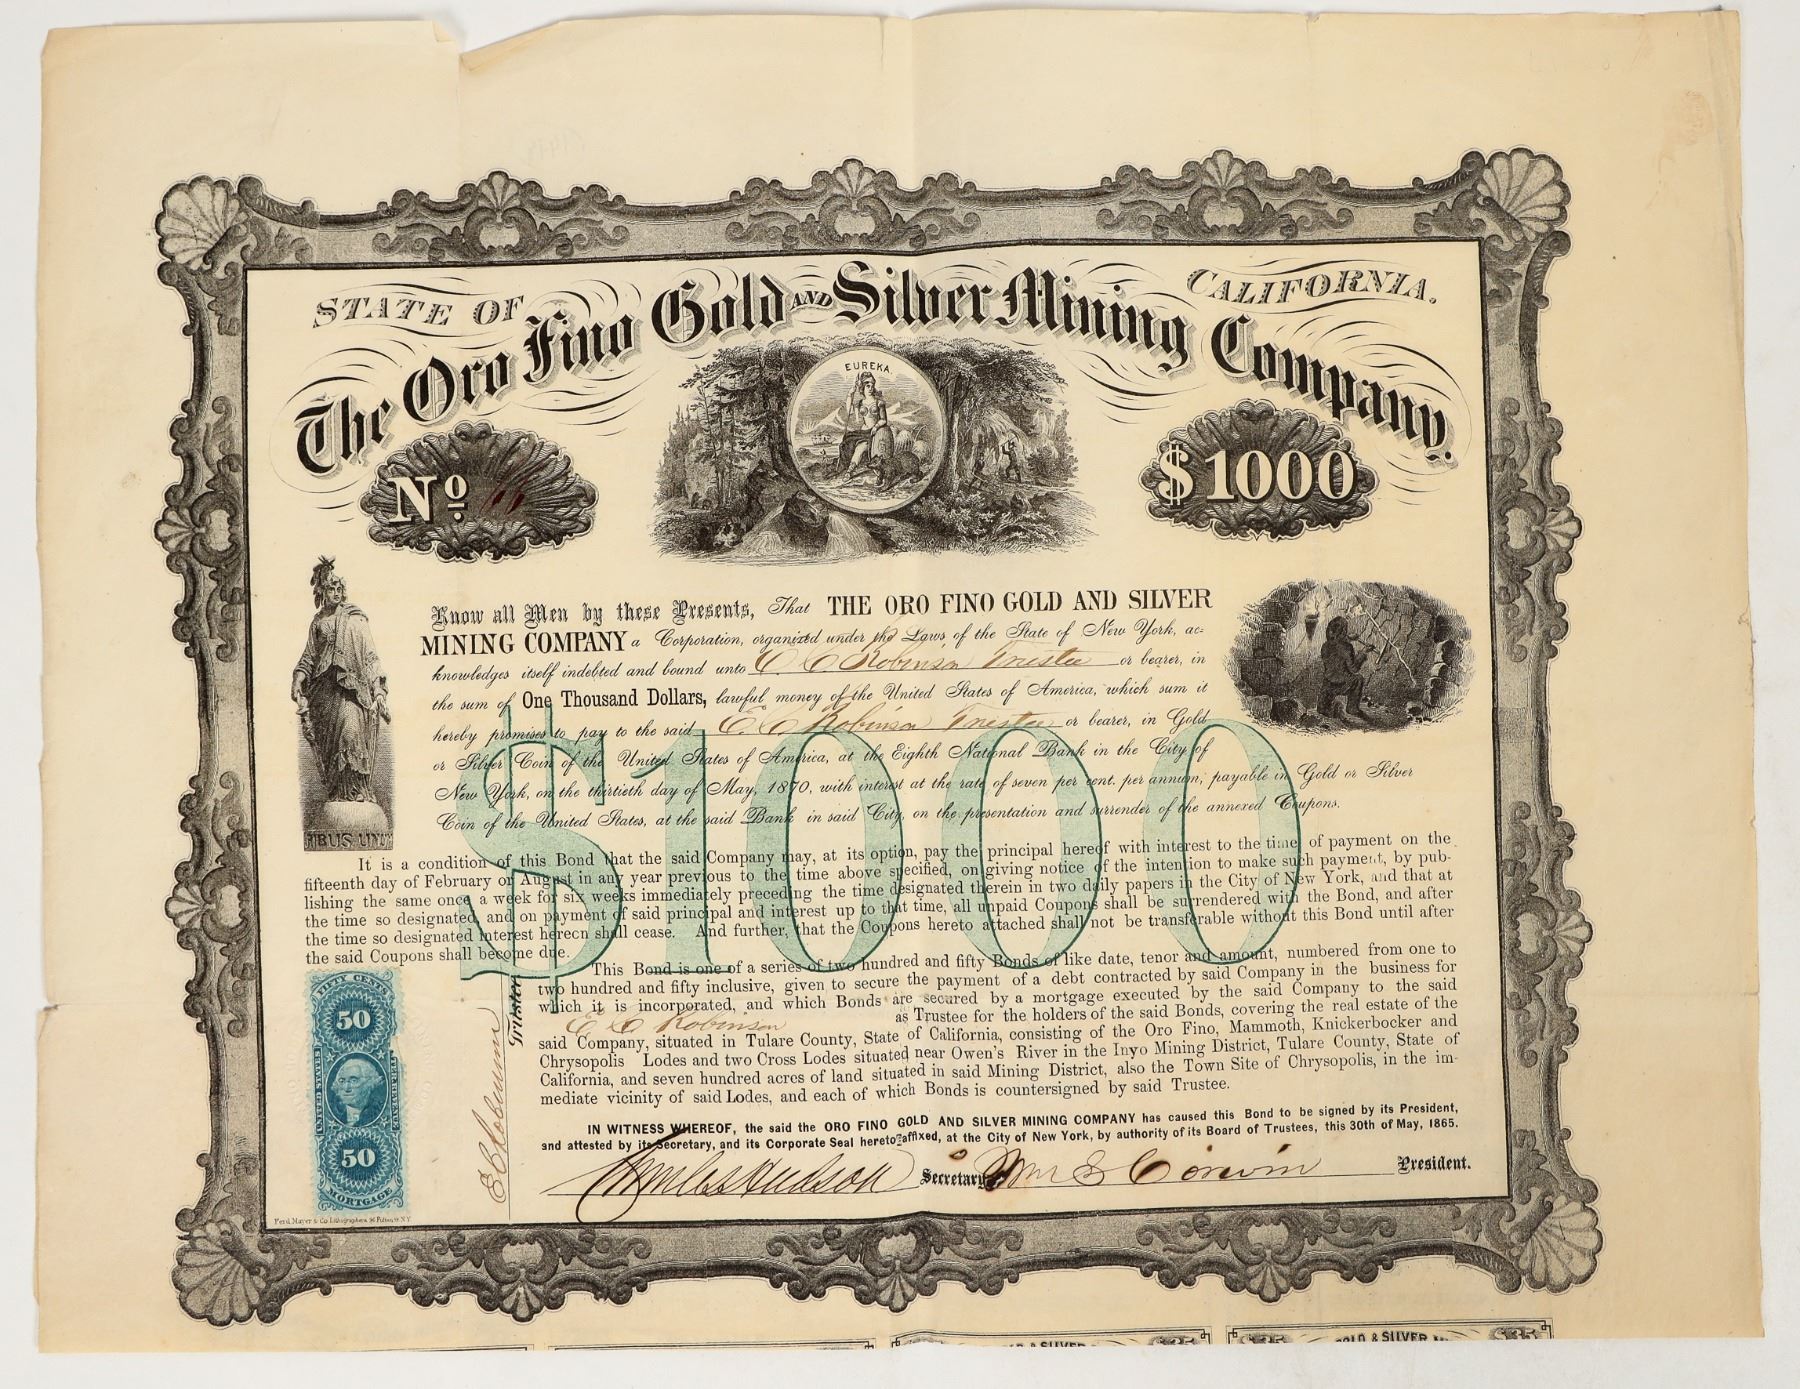 STATE OF CALIFORNIA.
The Oro Fino Gold AND Silver Mining Company.
EUREKA.
No. 66
$1000
Know all Men by these Presents, That THE ORO FINO GOLD AND SILVER
MINING COMPANY a Corporation, organized under the Laws of the State of New York, ac=
knowledges itself indebted and bound unto E. C. Robinson Trustee or bearer, in
the sum of One Thousand Dollars, lawful money of the United States of America, which sum it
hereby promises to pay to the said E. C. Robinson Trustee or bearer, in Gold
or Silver Coin of the United States of America, at the Eighth National Bank in the City of
New York, on the thirtieth day of May, 1870, with interest at the rate of seven per cent. per annum; payable in Gold or Silver
Coin of the United States, at the said Bank in said City, on the presentation and surrender of the annexed Coupons.
$1000
RIBUS UNU
It is a condition of this Bond that the said Company may, at its option, pay the principal hereof with interest to the time of payment on the
fifteenth day of February or August in any year previous to the time above specified, on giving notice of the intention to make such payment, by pub-
lishing the same once a week for six weeks immediately preceding the time designated therein in two daily papers in the City of New York, and that at
the time so designated, and on payment of said principal and interest up to that time, all unpaid Coupons shall be surrendered with the Bond, and after
the time so designated interest hereon shall cease. And further, that the Coupons hereto attached shall not be transferable without this Bond until after
the said Coupons shall become due.
This Bond is one of a series of two hundred and fifty Bonds of like date, tenor and amount, numbered from one to
two hundred and fifty inclusive, given to secure the payment of a debt contracted by said Company in the business for
which it is incorporated, and which Bonds are secured by a mortgage executed by the said Company to the said
E C Robinson as Trustee for the holders of the said Bonds, covering the real estate of the
said Company, situated in Tulare County, State of California, consisting of the Oro Fino, Mammoth, Knickerbocker and
Chrysopolis Lodes and two Cross Lodes situated near Owen's River in the Inyo Mining District, Tulare County, State of
California, and seven hundred acres of land situated in said Mining District, also the Town Site of Chrysopolis, in the im-
mediate vicinity of said Lodes, and each of which Bonds is countersigned by said Trustee.
IN WITNESS WHEREOF, the said the ORO FINO GOLD AND SILVER MINING COMPANY has caused this Bond to be signed by its President,
and attested by its Secretary, and its Corporate Seal hereto affixed, at the City of New York, by authority of its Board of Trustees, this 30th of May, 1865.
Hudson Secretary. Wm S Corwin President.
E C Robinson Trustee
FIFTY CENTS
50
UNITED STATES
INTER. REVENUE
50
MORTGAGE
Ferd. Mayer & Co. Lithographers, 96 Fulton St. N.Y.
$35
$35
GOLD & SILVER M
$35